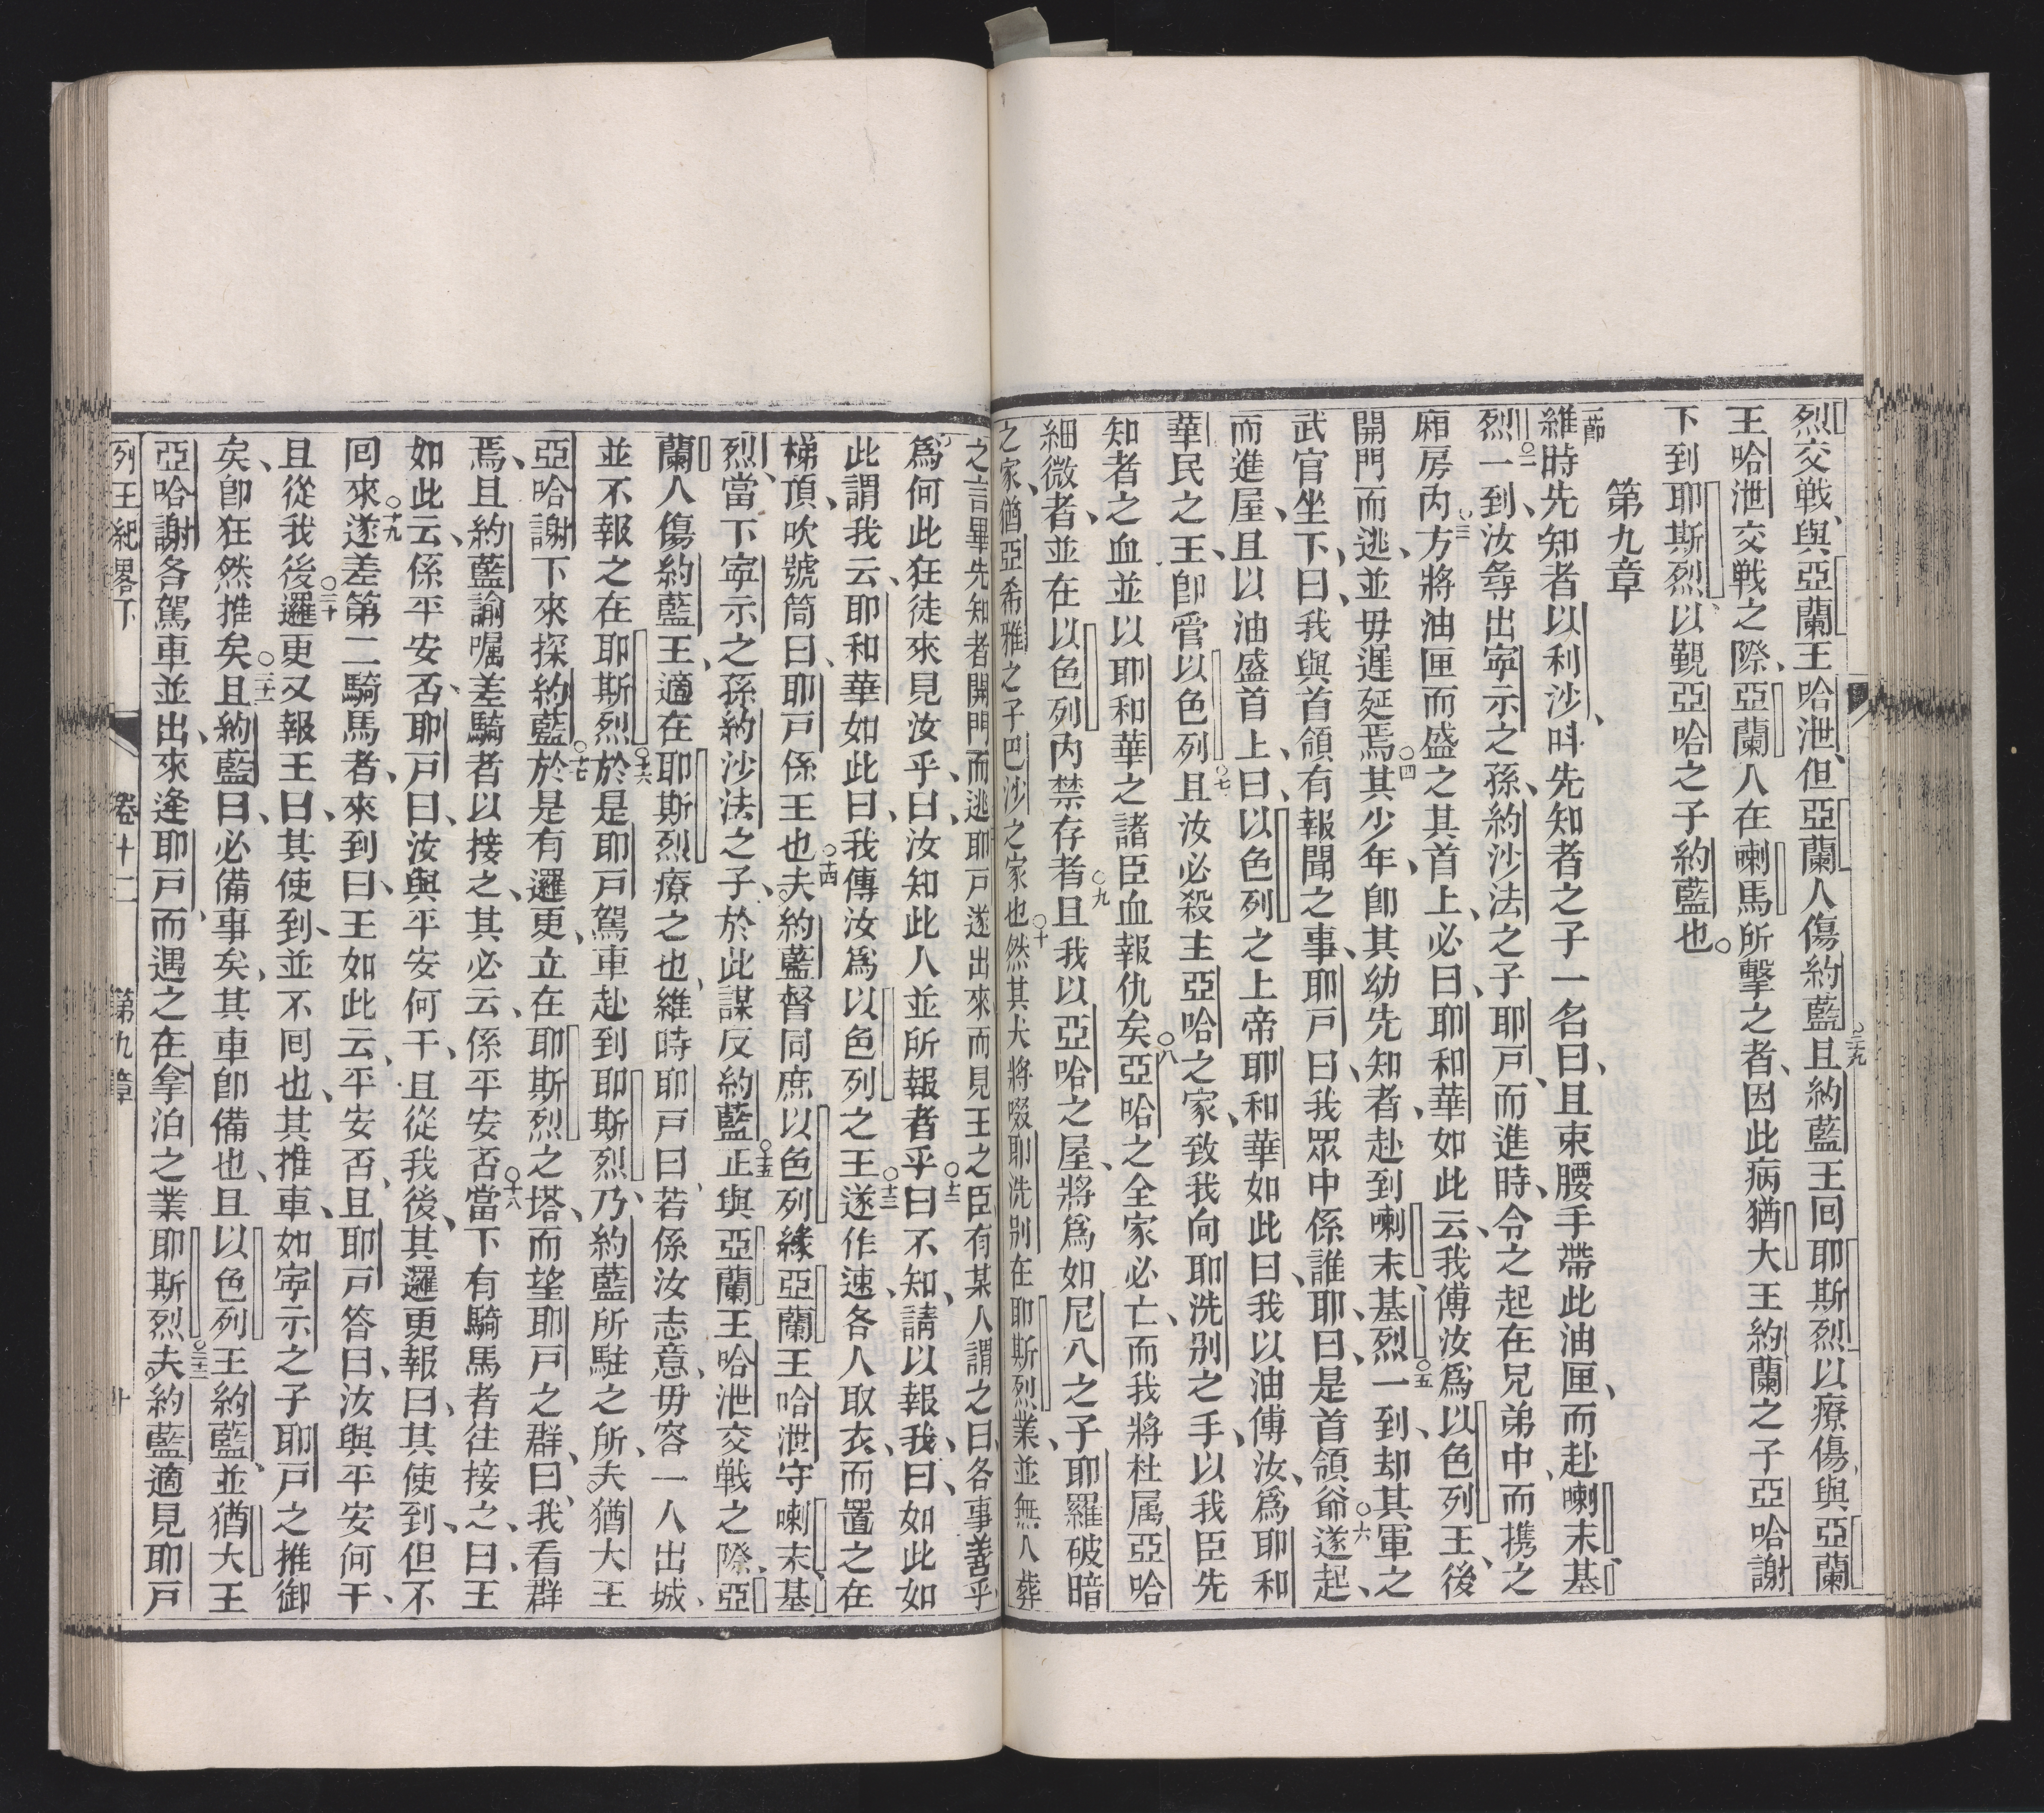 烈交戦、與亞蘭王哈泄、但亞蘭人傷約藍○二九且約藍王囘耶斯烈以療傷、與亞蘭
王哈泄交戦之際、亞蘭人在喇馬所擊之者、因此病猶大王約蘭之子亞哈謝
下到耶斯烈、以覲亞哈之子約藍也○
第九章
一節維時先知者以利沙、呌先知者之子一名曰、且束腰手帶此油匣、而赴喇末基、
烈○二一到、汝尋出寧示之孫、約沙法之子耶戸、而進時、令之起在兄弟中、而携之
廂房內○三方將油匣而盛之其首上、必曰、耶和華如此云、我傅汝爲以色列王、後
開門而逃、並毋遲延焉○四其少年、卽其幼先知者、赴到喇末基烈○五一到、却其軍之
武官坐下、曰、我與首領有報聞之事、耶戸曰、我眾中係誰耶、曰、是首領爺○六遂起、
而進屋、且以油盛首上、曰、以色列之上帝耶和華如此曰、我以油傅汝、爲耶和
華民之王、卽管以色列○七且汝必殺主亞哈之家、致我向耶洗别之手、以我臣先
知者之血並以耶和華之諸臣血報仇矣○八亞哈之全家必亡、而我將杜属亞哈
細微者、並在以色列內禁存者○九且我以亞哈之屋、將爲如尼八之子耶羅破暗
之家、猶亞希雅之子巴沙之家也○十然其犬將啜耶洗别在耶斯烈業、並無人葬
之言畢先知者開門而逃耶戸遂出來而見王之臣有某人謂之曰各事善乎、
爲何此狂徒來見汝乎、曰、汝知此人並所報者乎○十二曰不知、請以報我、曰、如此如
此謂我云、耶和華如此曰、我傳汝爲以色列之王○十三遂作速、各人取衣、而置之在
梯頂、吹號筒曰、耶戸係王也○十四夫約藍督同庶以色列緣亞蘭王哈泄守喇末基、
烈、當下寧示之孫約沙法之子、於此謀反約藍○十五正與亞蘭王哈泄交戦之際、亞
蘭人傷約藍王、適在耶斯烈療之也、維時耶戸曰、若係汝志意、毋容一人出城、
並不報之在耶斯烈○十六於是耶戸駕車赴到耶斯烈、乃約藍所駐之所、夫猶大王
亞哈謝下來探約藍○十七於是有邏更、立在耶斯烈之塔、而望耶戸之群、曰、我看群
焉、且約藍諭囑差騎者以接之、其必云、係平安否○十八當下有騎馬者往接之、曰、王
如此云、係平安否、耶戸曰、汝與平安何干、且從我後、其邏更報曰、其使到、但不
囘來○十九遂差第二騎馬者、來到、曰、王如此云、平安否、且耶戸答曰、汝與平安何干、
且從我後○二十邏更又報王曰、其使到、並不囘也、其推車、如寧示之子耶戸之推御
矣、卽狂然推矣○二一且約藍曰、必備事矣、其車卽備也、且以色列王約藍、並猶大王
亞哈謝各駕車並出、來逢耶戸、而遇之在拿泊之業耶斯烈○二二夫約藍適見耶戸
列王紀畧下 卷十二 第九章 十